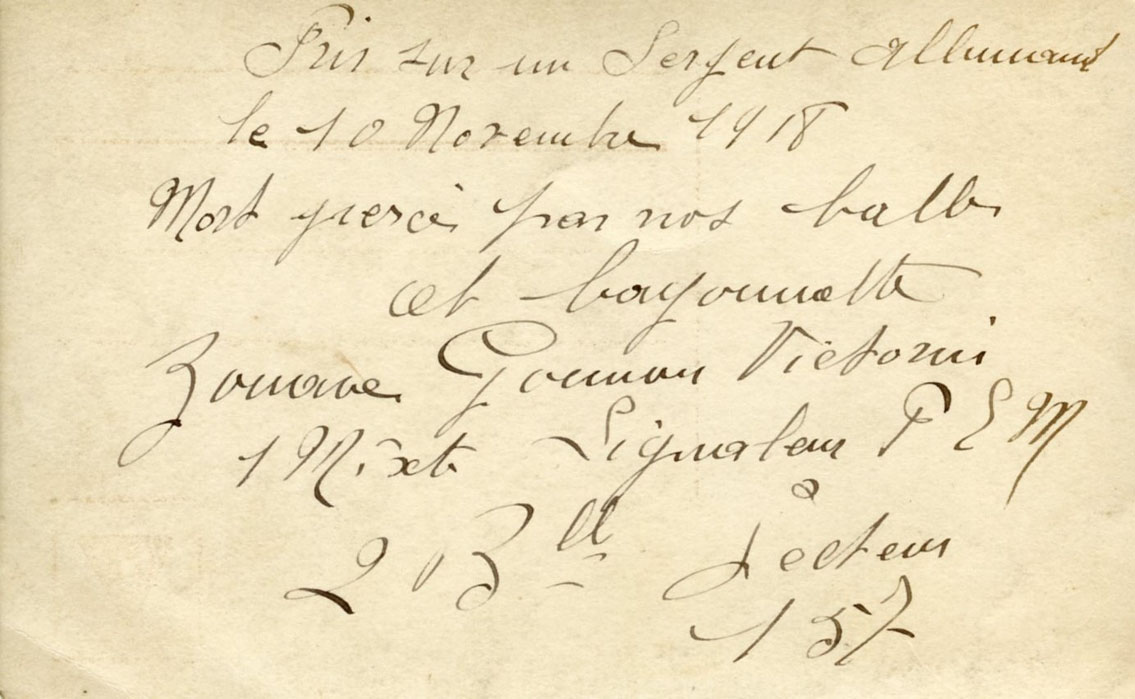 Pris sur un Sergent Allemand
le 10 Novembre 1918
Mort percé par nos balles
et bayonnette
Zouave Goumon Victorin
1 Mixte Signaleur P E M
2 B<sup>ll</sup> Secteur
157